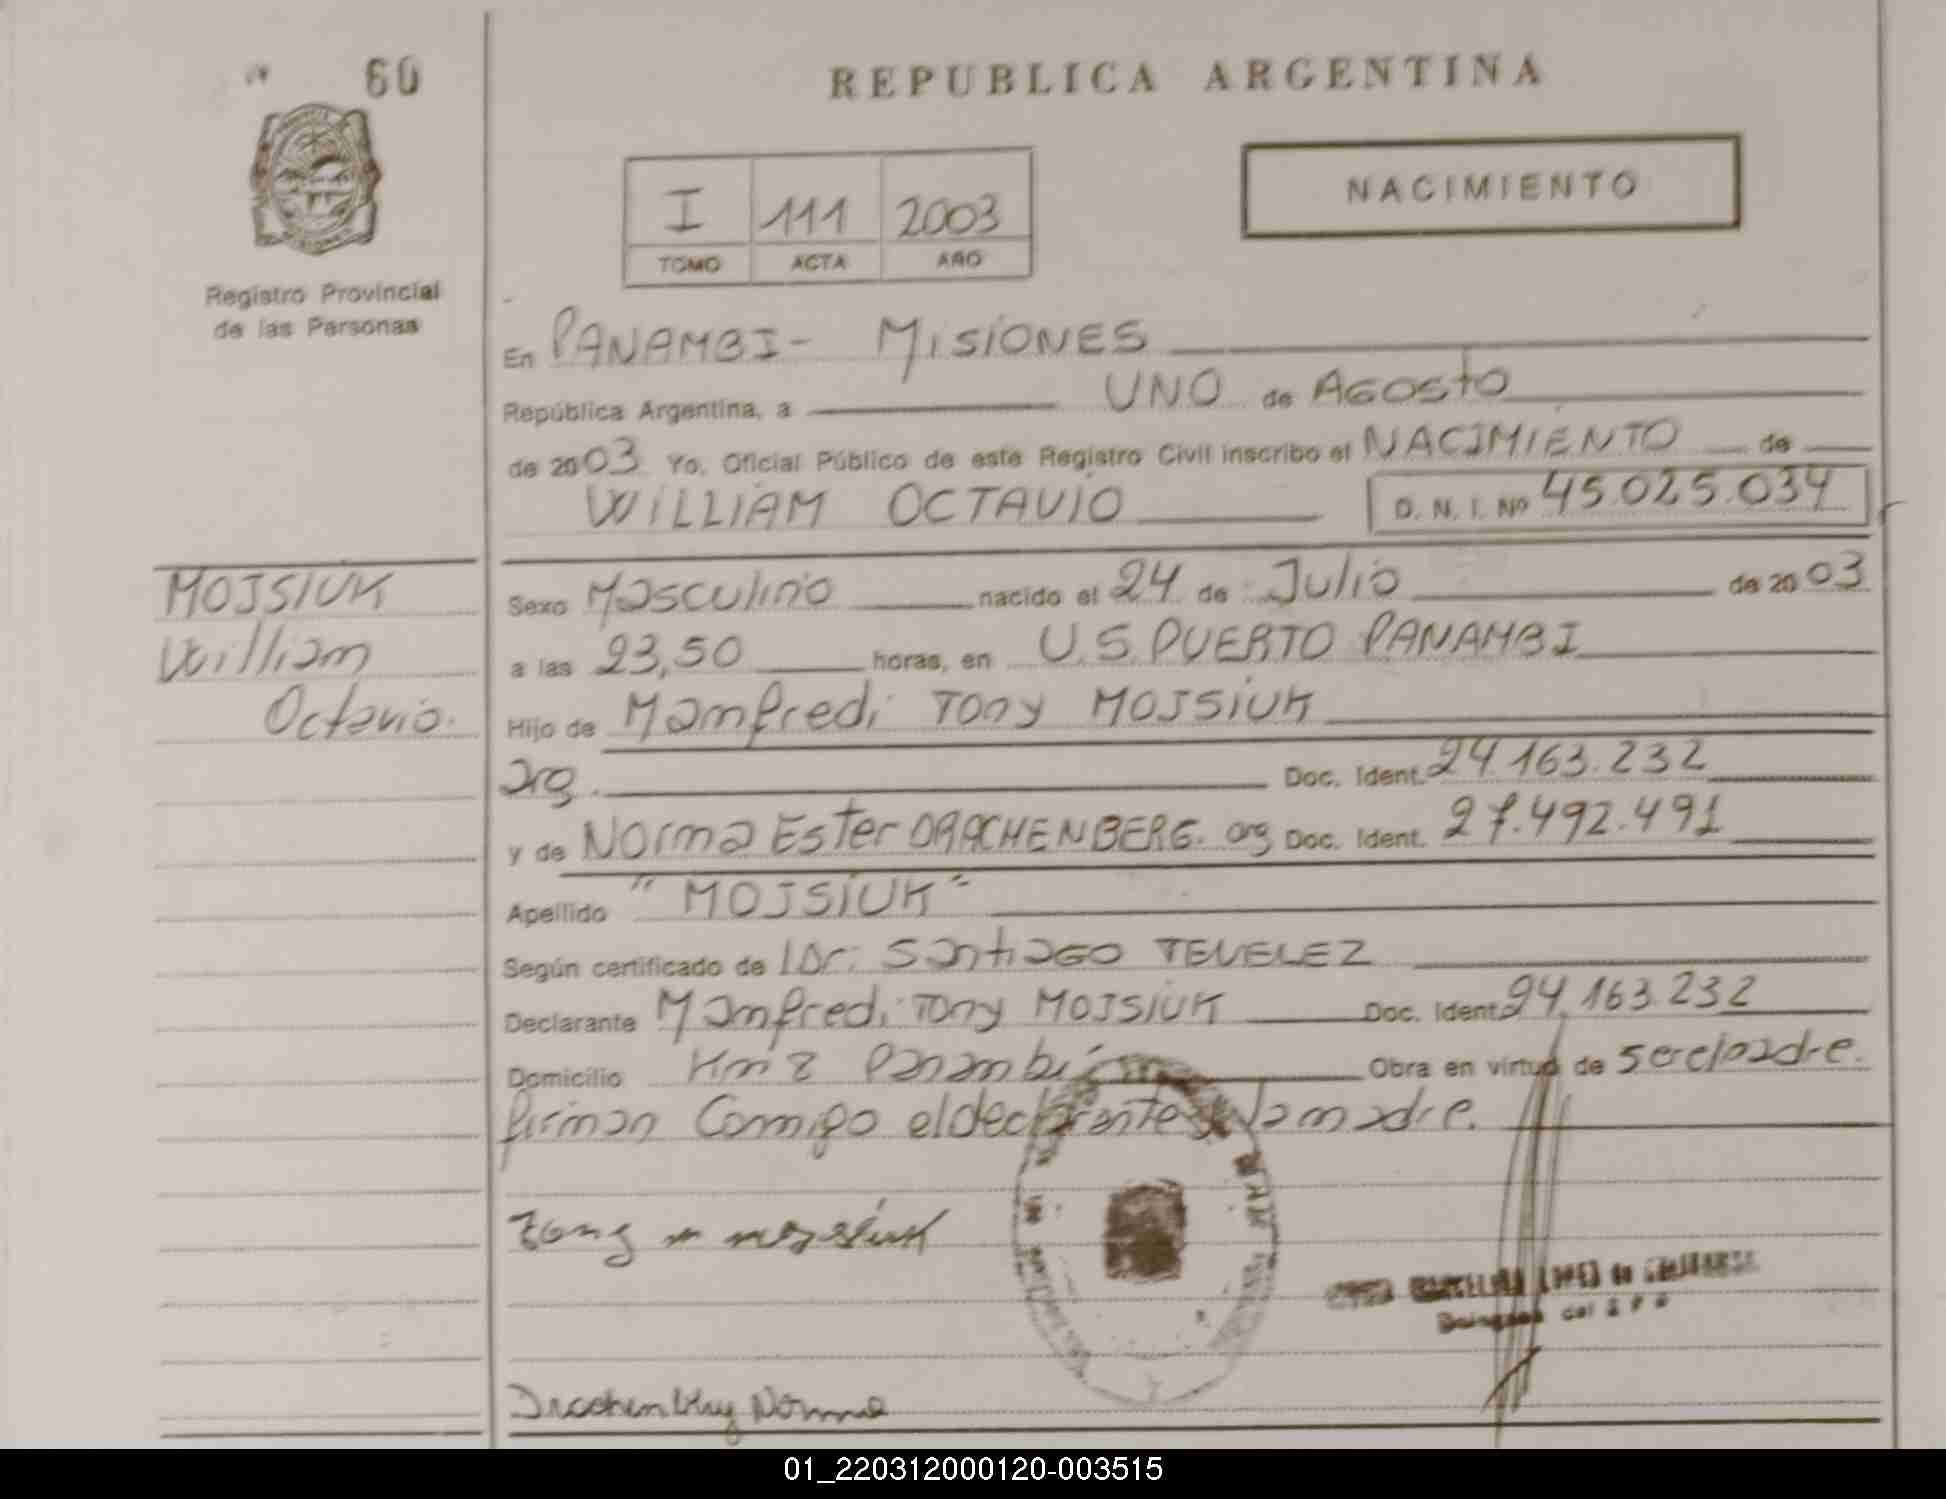 60
REPUBLICA ARGENTINA
I 111 2003
TOMO ACTA AÑO
NACIMIENTO
Registro Provincial
de las Personas
En PANAMBI - MisiONES
República Argentina, a UNO de AGOSTO
de 2003 Yo, Oficial Público de este Registro Civil inscribo el NACIMIENTO de
WILLIAM OCTAVIO D. N. I. Nº 45.025.034
MOJSIUK
William
Octavio.
Sexo Masculino nacido el 24 de Julio de 2003
a las 23,50 horas, en U.S. PUERTO PANAMBI
Hijo de Manfredi Tony MOJSIUK
arg. Doc. Ident. 24.163.232
y de Norma Ester DRACHENBERG. arg Doc. Ident. 27.492.491
Apellido "MOJSIUK"
Según certificado de Dr. Santiago TEVELEZ
Declarante Manfredi Tony MOJSIUK Doc. Ident. 24.163.232
Domicilio Km 8 Panambi Obra en virtud de ser el padre.
firman Conmigo el declarante y la madre.
Drachenberg Norma
01_220312000120-003515